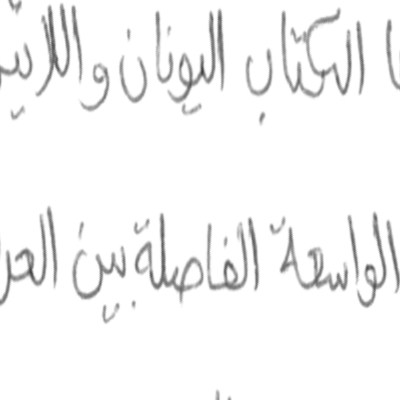 الكتاب اليونان واللاتين
الواسعة الفاصلة بين العر